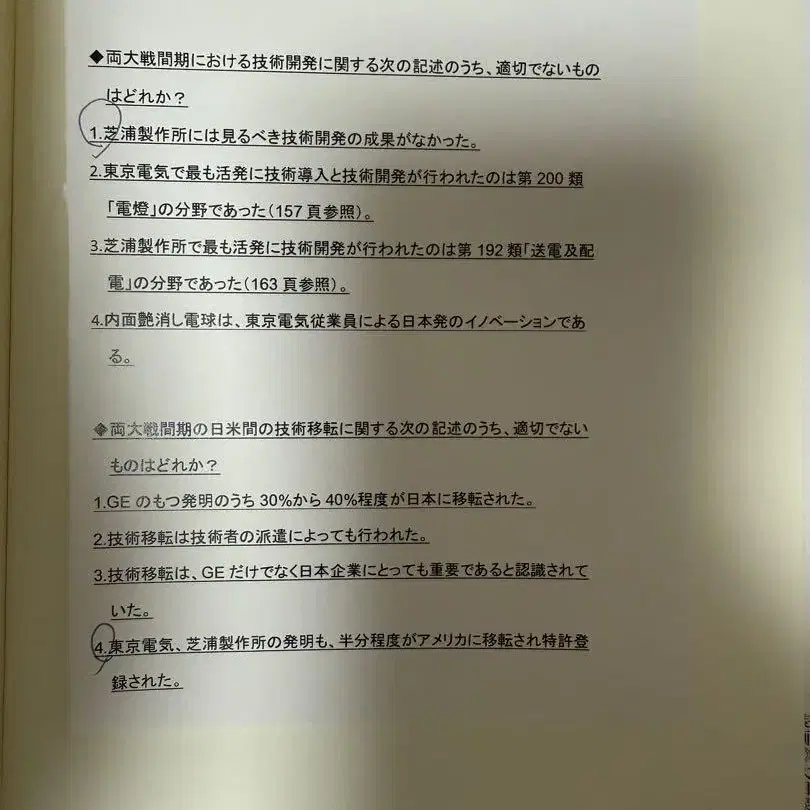 ◆両大戦間期における技術開発に関する次の記述のうち、適切でないもの
はどれか?
1.芝浦製作所には見るべき技術開発の成果がなかった。
2.東京電気で最も活発に技術導入と技術開発が行われたのは第 200 類
「電燈」の分野であった(157 頁参照)。
3.芝浦製作所で最も活発に技術開発が行われたのは第 192 類「送電及配
電」の分野であった(163 頁参照)。
4.内面艶消し電球は、東京電気従業員による日本発のイノベーションであ
る。
◆両大戦間期の日米間の技術移転に関する次の記述のうち、適切でない
ものはどれか?
1.GE のもつ発明のうち 30%から 40%程度が日本に移転された。
2.技術移転は技術者の派遣によっても行われた。
3.技術移転は、GE だけでなく日本企業にとっても重要であると認識されて
いた。
4.東京電気、芝浦製作所の発明も、半分程度がアメリカに移転され特許登
録された。